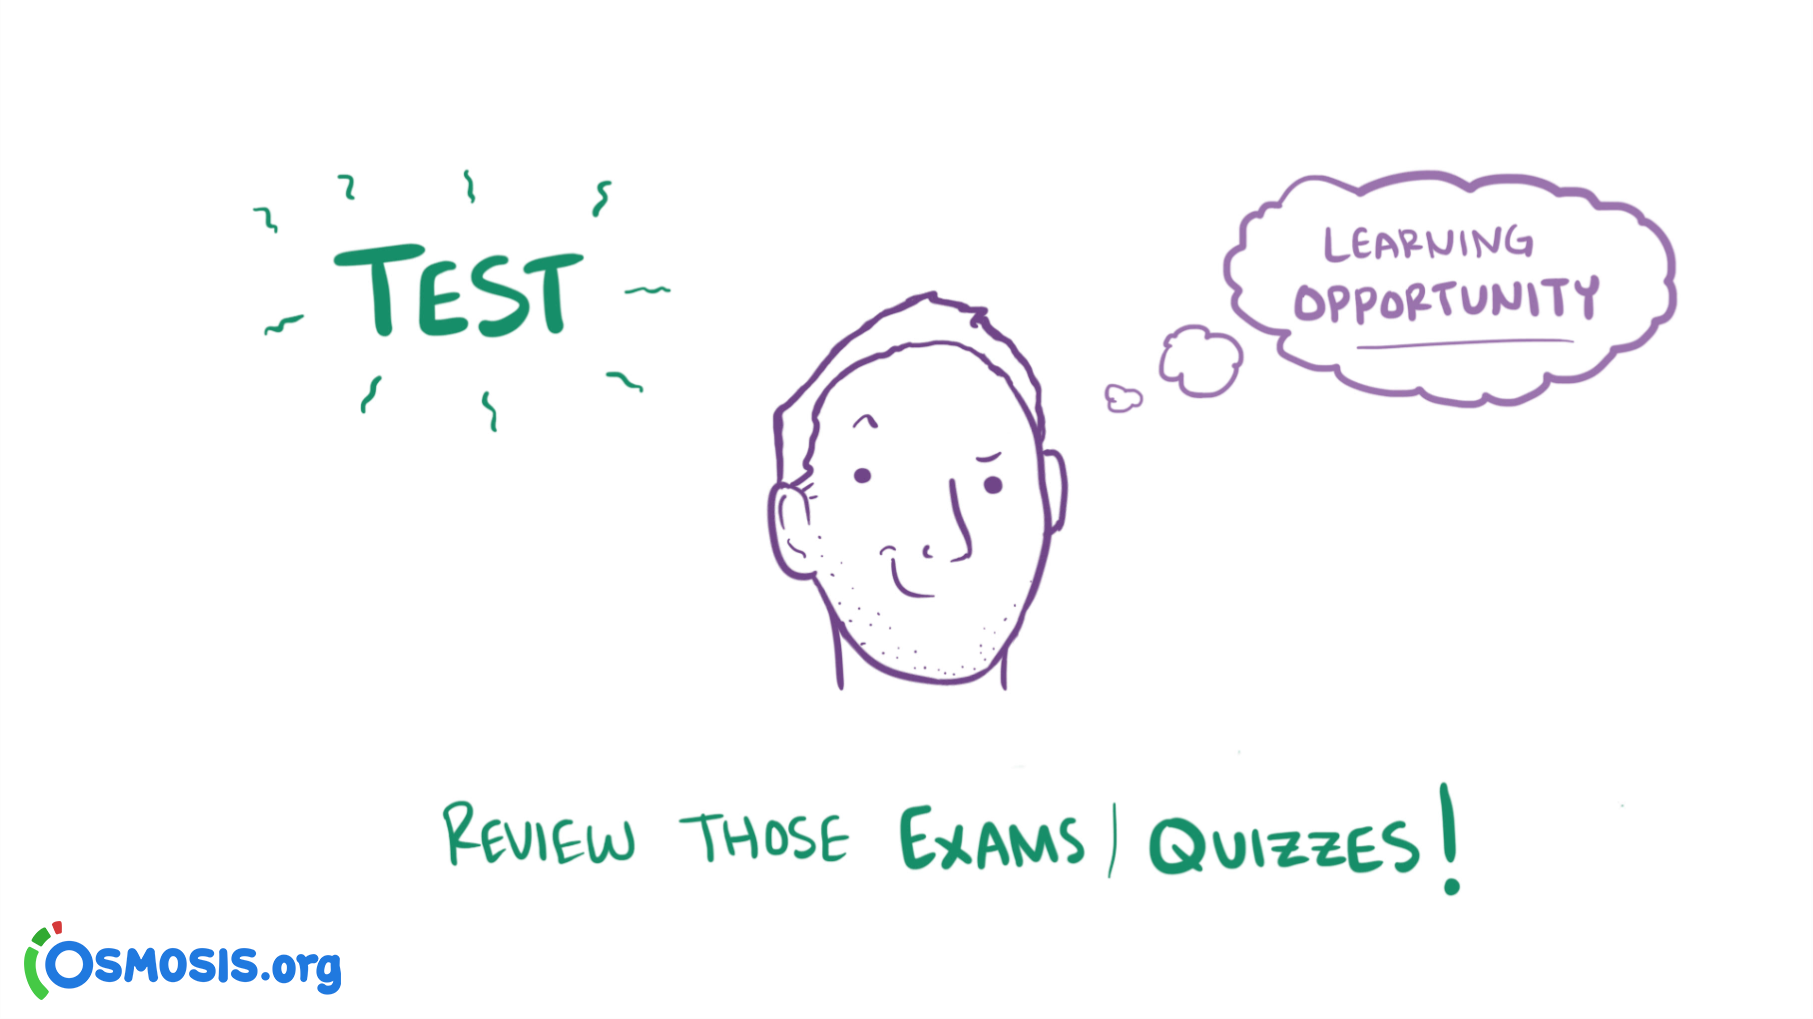 TEST
LEARNING
OPPORTUNITY
REVIEW THOSE EXAMS | QUIZZES!
OSMOSIS.org